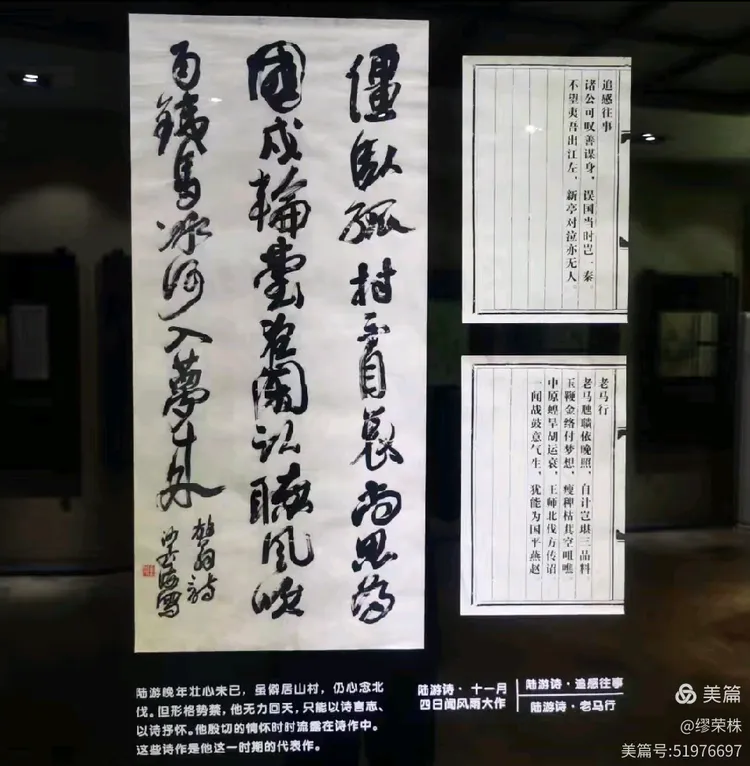 僵臥孤村不自哀尚思為
國戍輪臺夜闌臥聽風吹
雨鐵馬冰河入夢來
放翁詩
沙孟海
追感往事
诸公可叹善谋身，误国当时岂一秦。
不望夷吾出江左，新亭对泣亦无人。
老马行
老马虺隤依晚照，自计岂堪三品料。
玉鞭金络付梦想，瘦稗枯萁空咀噍。
中原蝗旱胡运衰，王师北伐方传诏。
一闻战鼓意气生，犹能为国平燕赵
陆游晚年壮心未已，虽僻居山村，仍心念北
伐。但形格势禁，他无力回天，只能以诗言志、
以诗抒怀。他殷切的情怀时时流露在诗作中。
这些诗作是他这一时期的代表作。
陆游诗·十一月
四日闻风雨大作
陆游诗·追感往事
陆游诗·老马行
美篇
@缪荣株
美篇号:51976697